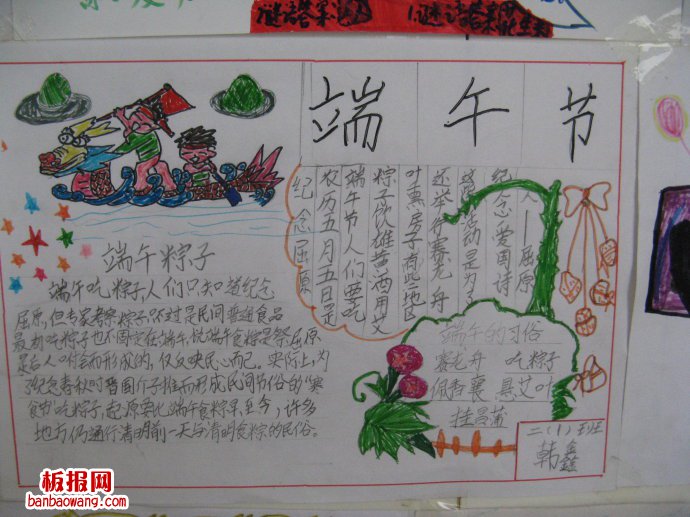 谜语答案
端午节
纪念屈原
农历五月五日是
端午节人们要吃
粽子饮雄黄酒用艾
叶熏房子有些地区
还举行赛龙舟
等活动是为了
纪念爱国诗
人——屈原
端午粽子
端午吃粽子,人们只知道纪念
屈原,但专家考察粽子不过是民间普通食品
最初吃粽子也不固定在端午,说端午食粽是祭屈原
是后人附会而形成的,仅反映民心而已。实际上,为
了纪念春秋时晋国介子推而形成民间节俗的"寒
食节"吃粽子,起源要比端午食粽早,至今,许多
地方仍通行清明前一天与清明食粽的民俗。
端午的习俗
赛龙舟 吃粽子
佩香囊 悬艾叶
挂昌蒲
二(1)班
韩鑫
板报网
banbaowang.com